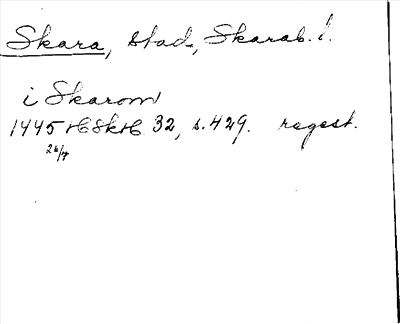 Skara, stad, Skarab. l.
i Skarom
1445 HSkH 32, s. 429. regest.
26/4